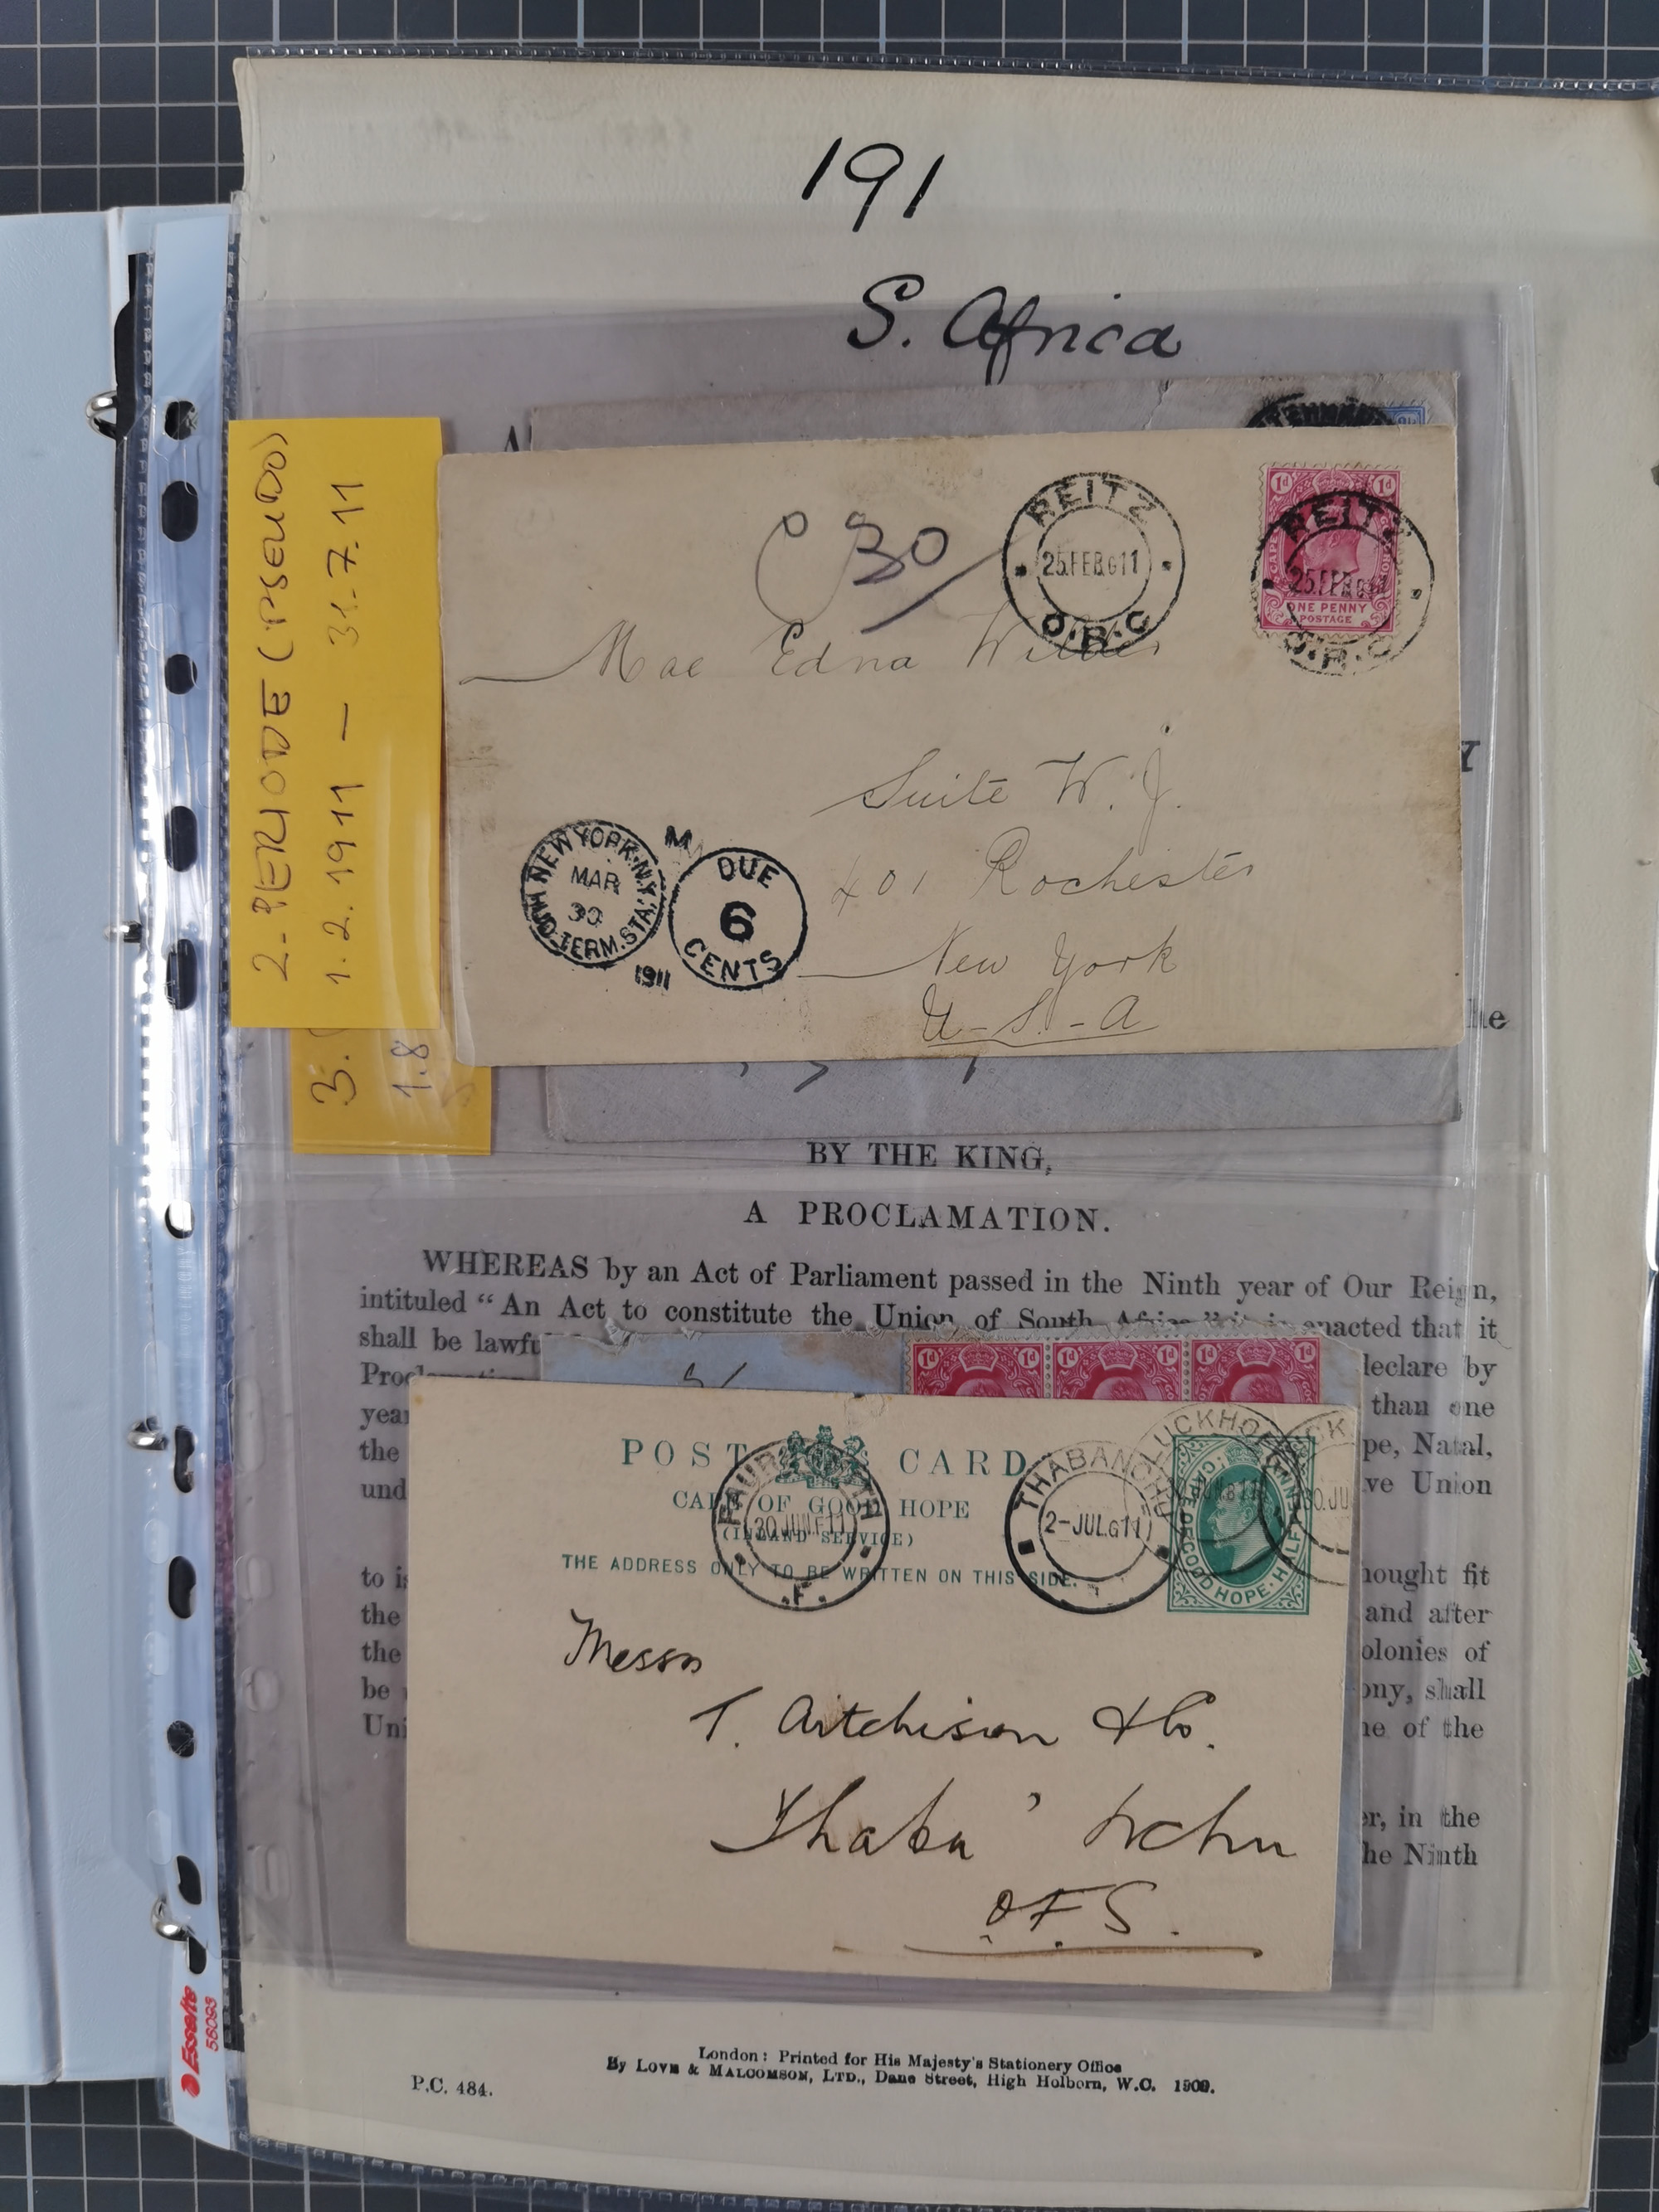 191
S. Africa
2. PERIODE (PSEUDO)
1.2.1911 — 31.7.11
3.
1.8
REITZ
25.FEB.G11
O.R.C
1d 1d
ONE PENNY
POSTAGE
REITZ
O.R.C
C 30
Mae Edna Wilder
Suite W. J.
401 Rochester
New York
U-S.-A
NEW YORK, N.Y.
MAR
30
HUD. TERM. STA.
1911
DUE
6
CENTS
he
BY THE KING,
A PROCLAMATION.
WHEREAS by an Act of Parliament passed in the Ninth year of Our Reign,
intituled “An Act to constitute the Union of South Africa” it is enacted that it
shall be lawf
declare by
than one
the pe, Natal,
und ve Union
1d 1d 1d 1d 1d
POST CARD
CAPE OF GOOD HOPE
(INLAND SERVICE)
THE ADDRESS ONLY TO BE WRITTEN ON THIS SIDE.
30 JUN.F11
THABANCHU
2-JUL.G11
LUCKHOFF
30.JU
CAPE OF GOOD HOPE. HALF
Messrs
T. Aitchison & Co.
Thaba' Nchu
O.F.S.
to is hought fit
the and after
the olonies of
be ony, shall
Uni ne of the
er, in the
he Ninth
Esselte
56093
London: Printed for His Majesty's Stationery Office
By LOVE & MALCOMSON, LTD., Dane Street, High Holborn, W.C. 1909.
P.C. 484.